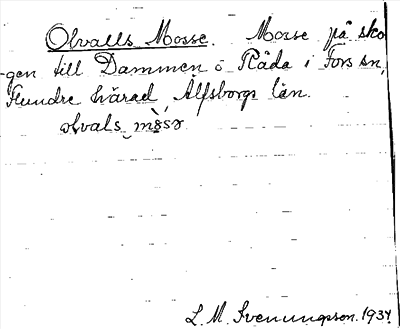 Olvalls Mosse. Mosse på sko
gen till Dammen o Råda i Fors sn,
Flundre härad, Älfsborgs län.
L. M. Svenungsson. 1934.